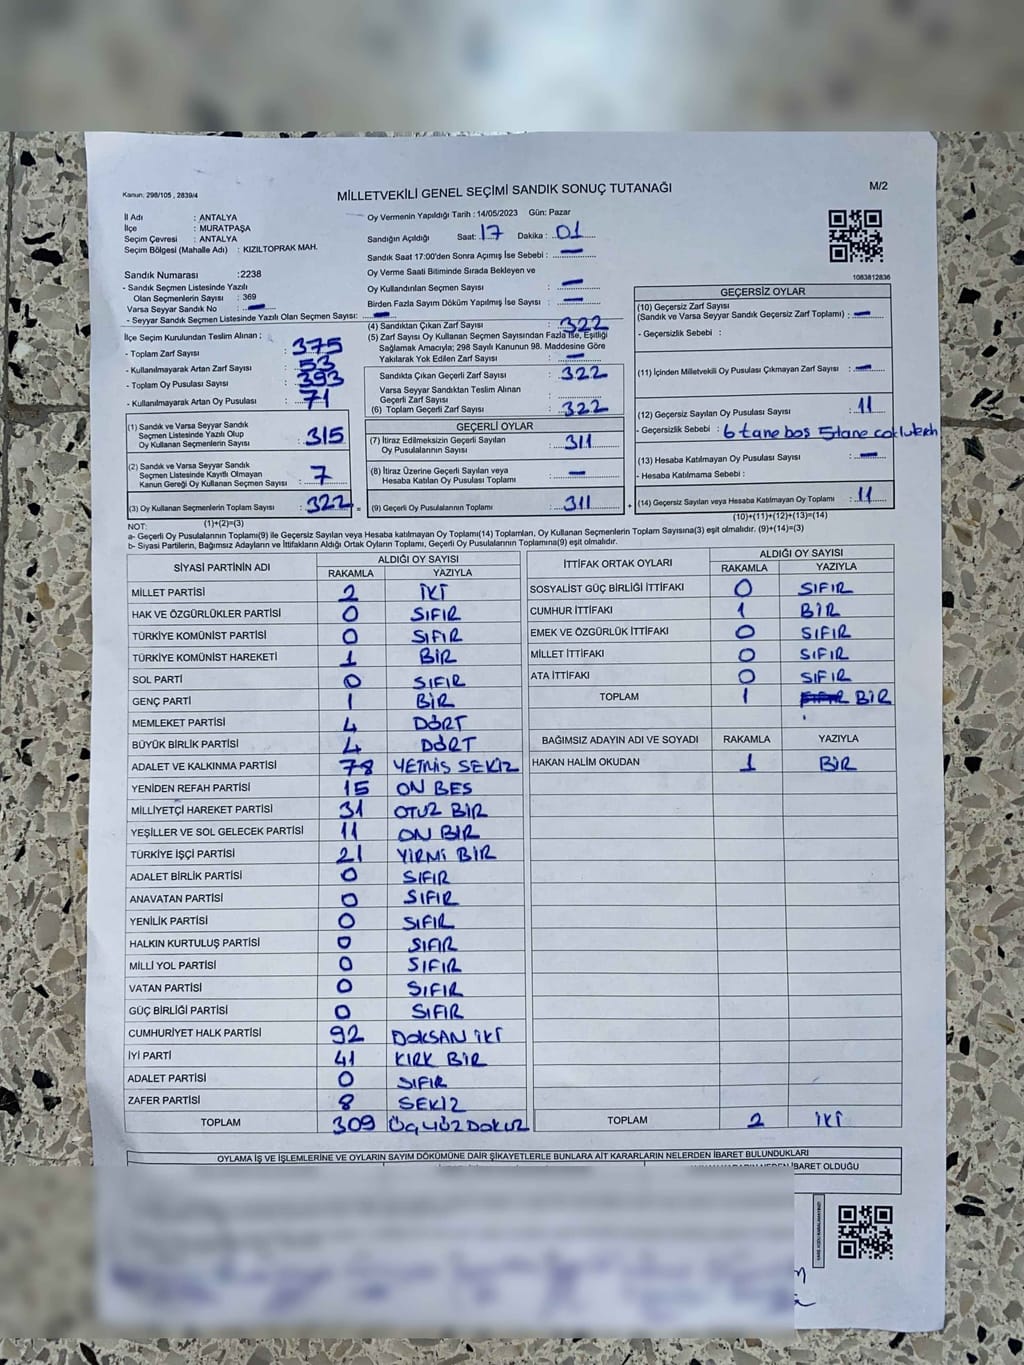 Kanun: 298/105 , 2839/4
MİLLETVEKİLİ GENEL SEÇİMİ SANDIK SONUÇ TUTANAĞI
M/2
İl Adı : ANTALYA
İlçe : MURATPAŞA
Seçim Çevresi : ANTALYA
Seçim Bölgesi (Mahalle Adı) : KIZILTOPRAK MAH.
Sandık Numarası :2238
- Sandık Seçmen Listesinde Yazılı
Olan Seçmenlerin Sayısı : 369
Varsa Seyyar Sandık No : —
- Seyyar Sandık Seçmen Listesinde Yazılı Olan Seçmen Sayısı: —
Oy Vermenin Yapıldığı Tarih : 14/05/2023 Gün: Pazar
Sandığın Açıldığı Saat: 17 Dakika : 01
Sandık Saat 17:00'den Sonra Açımış İse Sebebi : —
Oy Verme Saati Bitiminde Sırada Bekleyen ve
Oy Kullandırılan Seçmen Sayısı : —
Birden Fazla Sayım Döküm Yapılmış İse Sayısı : —
1083812836
İlçe Seçim Kurulundan Teslim Alınan ;
- Toplam Zarf Sayısı : 375
- Kullanılmayarak Artan Zarf Sayısı : 53
- Toplam Oy Pusulası Sayısı : 393
- Kullanılmayarak Artan Oy Pusulası : 71
(1) Sandık ve Varsa Seyyar Sandık
Seçmen Listesinde Yazılı Olup
Oy Kullanan Seçmenlerin Sayısı : 315
(2) Sandık ve Varsa Seyyar Sandık
Seçmen Listesinde Kayıtlı Olmayan
Kanun Gereği Oy Kullanan Seçmen Sayısı : 7
(3) Oy Kullanan Seçmenlerin Toplam Sayısı : 322 =
(1)+(2)=(3)
(4) Sandıktan Çıkan Zarf Sayısı : 322
(5) Zarf Sayısı Oy Kullanan Seçmen Sayısından Fazla İse, Eşitliği
Sağlamak Amacıyla; 298 Sayılı Kanunun 98. Maddesine Göre
Yakılarak Yok Edilen Zarf Sayısı : —
Sandıkta Çıkan Geçerli Zarf Sayısı : 322
Varsa Seyyar Sandıktan Teslim Alınan
Geçerli Zarf Sayısı :
(6) Toplam Geçerli Zarf Sayısı : 322
GEÇERLİ OYLAR
(7) İtiraz Edilmeksizin Geçerli Sayılan
Oy Pusulalarının Sayısı : 311
(8) İtiraz Üzerine Geçerli Sayılan veya
Hesaba Katılan Oy Pusulası Toplamı : —
(9) Geçerli Oy Pusulalarının Toplamı : 311 +
GEÇERSİZ OYLAR
(10) Geçersiz Zarf Sayısı
(Sandık ve Varsa Seyyar Sandık Geçersiz Zarf Toplamı) : —
- Geçersizlik Sebebi :
(11) İçinden Milletvekili Oy Pusulası Çıkmayan Zarf Sayısı : —
(12) Geçersiz Sayılan Oy Pusulası Sayısı : 11
- Geçersizlik Sebebi : 6 tane boş 5 tane
(13) Hesaba Katılmayan Oy Pusulası Sayısı : —
- Hesaba Katılmama Sebebi :
(14) Geçersiz Sayılan veya Hesaba Katılmayan Oy Toplamı : 11
(10)+(11)+(12)+(13)=(14)
NOT:
a- Geçerli Oy Pusulalarının Toplamı(9) ile Geçersiz Sayılan veya Hesaba katılmayan Oy Toplamı(14) Toplamları, Oy Kullanan Seçmenlerin Toplam Sayısına(3) eşit olmalıdır. (9)+(14)=(3)
b- Siyasi Partilerin, Bağımsız Adayların ve İttifakların Aldığı Ortak Oyların Toplamı, Geçerli Oy Pusulalarının Toplamına(9) eşit olmalıdır.
SİYASİ PARTİNİN ADI ALDIĞI OY SAYISI
RAKAMLA YAZIYLA
MİLLET PARTİSİ 2 İKİ
HAK VE ÖZGÜRLÜKLER PARTİSİ 0 SIFIR
TÜRKİYE KOMÜNİST PARTİSİ 0 SIFIR
TÜRKİYE KOMÜNİST HAREKETİ 1 BİR
SOL PARTİ 0 SIFIR
GENÇ PARTİ 1 BİR
MEMLEKET PARTİSİ 4 DÖRT
BÜYÜK BİRLİK PARTİSİ 4 DÖRT
ADALET VE KALKINMA PARTİSİ 78 YETMİS SEKİZ
YENİDEN REFAH PARTİSİ 15 ON BES
MİLLİYETÇİ HAREKET PARTİSİ 31 OTUZ BİR
YEŞİLLER VE SOL GELECEK PARTİSİ 11 ON BİR
TÜRKİYE İŞÇİ PARTİSİ 21 YİRMİ BİR
ADALET BİRLİK PARTİSİ 0 SIFIR
ANAVATAN PARTİSİ 0 SIFIR
YENİLİK PARTİSİ 0 SIFIR
HALKIN KURTULUŞ PARTİSİ 0 SIFIR
MİLLİ YOL PARTİSİ 0 SIFIR
VATAN PARTİSİ 0 SIFIR
GÜÇ BİRLİĞİ PARTİSİ 0 SIFIR
CUMHURİYET HALK PARTİSİ 92 DOKSAN İKİ
İYİ PARTİ 41 KIRK BİR
ADALET PARTİSİ 0 SIFIR
ZAFER PARTİSİ 8 SEKİZ
TOPLAM 309 ÜÇYÜZDOKUZ
İTTİFAK ORTAK OYLARI ALDIĞI OY SAYISI
RAKAMLA YAZIYLA
SOSYALİST GÜÇ BİRLİĞİ İTTİFAKI 0 SIFIR
CUMHUR İTTİFAKI 1 BİR
EMEK VE ÖZGÜRLÜK İTTİFAKI 0 SIFIR
MİLLET İTTİFAKI 0 SIFIR
ATA İTTİFAKI 0 SIFIR
TOPLAM 1 SIFIR BİR
BAĞIMSIZ ADAYIN ADI VE SOYADI RAKAMLA YAZIYLA
HAKAN HALİM OKUDAN 1 BİR
TOPLAM 2 İKİ
OYLAMA İŞ VE İŞLEMLERİNE VE OYLARIN SAYIM DÖKÜMÜNE DAİR ŞİKAYETLERLE BUNLARA AİT KARARLARIN NELERDEN İBARET BULUNDUKLARI
İBARET OLDUĞU